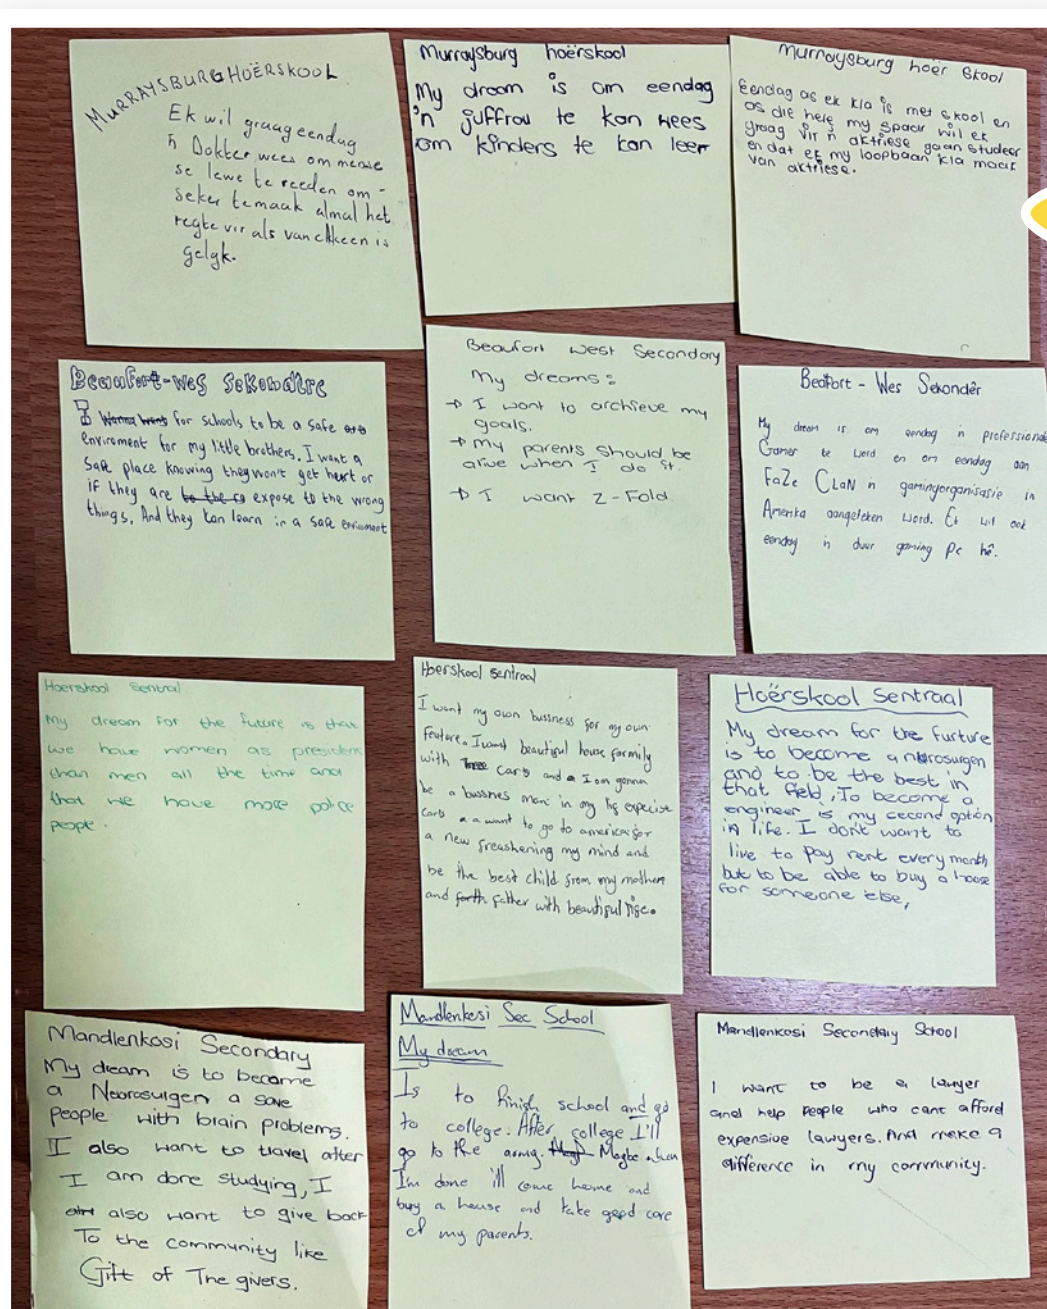 MURRAYSBURG HOËRSKOOL
Ek wil graag eendag
'n Dokter wees om mense
se lewe te reeden om
seker temaak almal het
regte vir als van elkeen is
gelyk.
Murraysburg hoërskool
My droom is om eendag
'n juffrou te kan wees
om kinders te kan leer
Murraysburg hoër Skool
Eendag as ek kla is met skool en
as die here my spaar wil ek
graag vir 'n aktriese gaan studeer
en dat ek my loopbaan kla maak
van aktriese.
Beaufort-wes Sekondêre
I Wanna want for schools to be a safe
enviroment for my little brothers. I want a
safe place knowing they won't get heart or
if they are to the expose to the wrong
things, And they can learn in a safe enviroment
Beaufort West Secondary
My dreams:
→ I want to archieve my
goals.
→ My parents should be
alive when I do it.
→ I want Z-Fold
Beafort - Wes Sekondêr
My droom is om eendag 'n professionele
Gamer te word en om eendag aan
FaZe CLaN 'n gamingorganisasie in
Amerika aangeteken word. Ek wil ook
eendag 'n duur gaming Pc hê.
Hoerskool Sentral
My dream for the future is that
we have women as president
than men all the time and
that we have more police
people.
Hoerskool sentraal
I want my own bussness for my own
feature. I want beautiful house formily
with cars and a I am gonna
be a bussnes man in my life expecise
cars a a want to go to america for
a new freashening my mind and
be the best child from my mothers
and forth father with beautiful
Hoërskool Sentraal
My dream for the furture
is to become a neurosurgen
and to be the best in
that field, To become a
engineer is my second option
in life. I don't want to
live to pay rent every month
but to be able to buy a house
for someone else,
Mandlenkosi Secondary
My dream is to become
a Neorosurgen a save
people with brain problems.
I also want to travel after
I am done studying, I
also want to give back
To the community like
Gift of The givers.
Mandlenkosi Sec School
My dream
Is to finish school and go
to college. After college I'll
go to the army. Maybe when
I'm done i'll come home and
buy a house and take good care
of my parents.
Mandlenkosi Secondary School
I want to be a lawyer
and help people who cant afford
expensive lawyers. And make a
difference in my community.